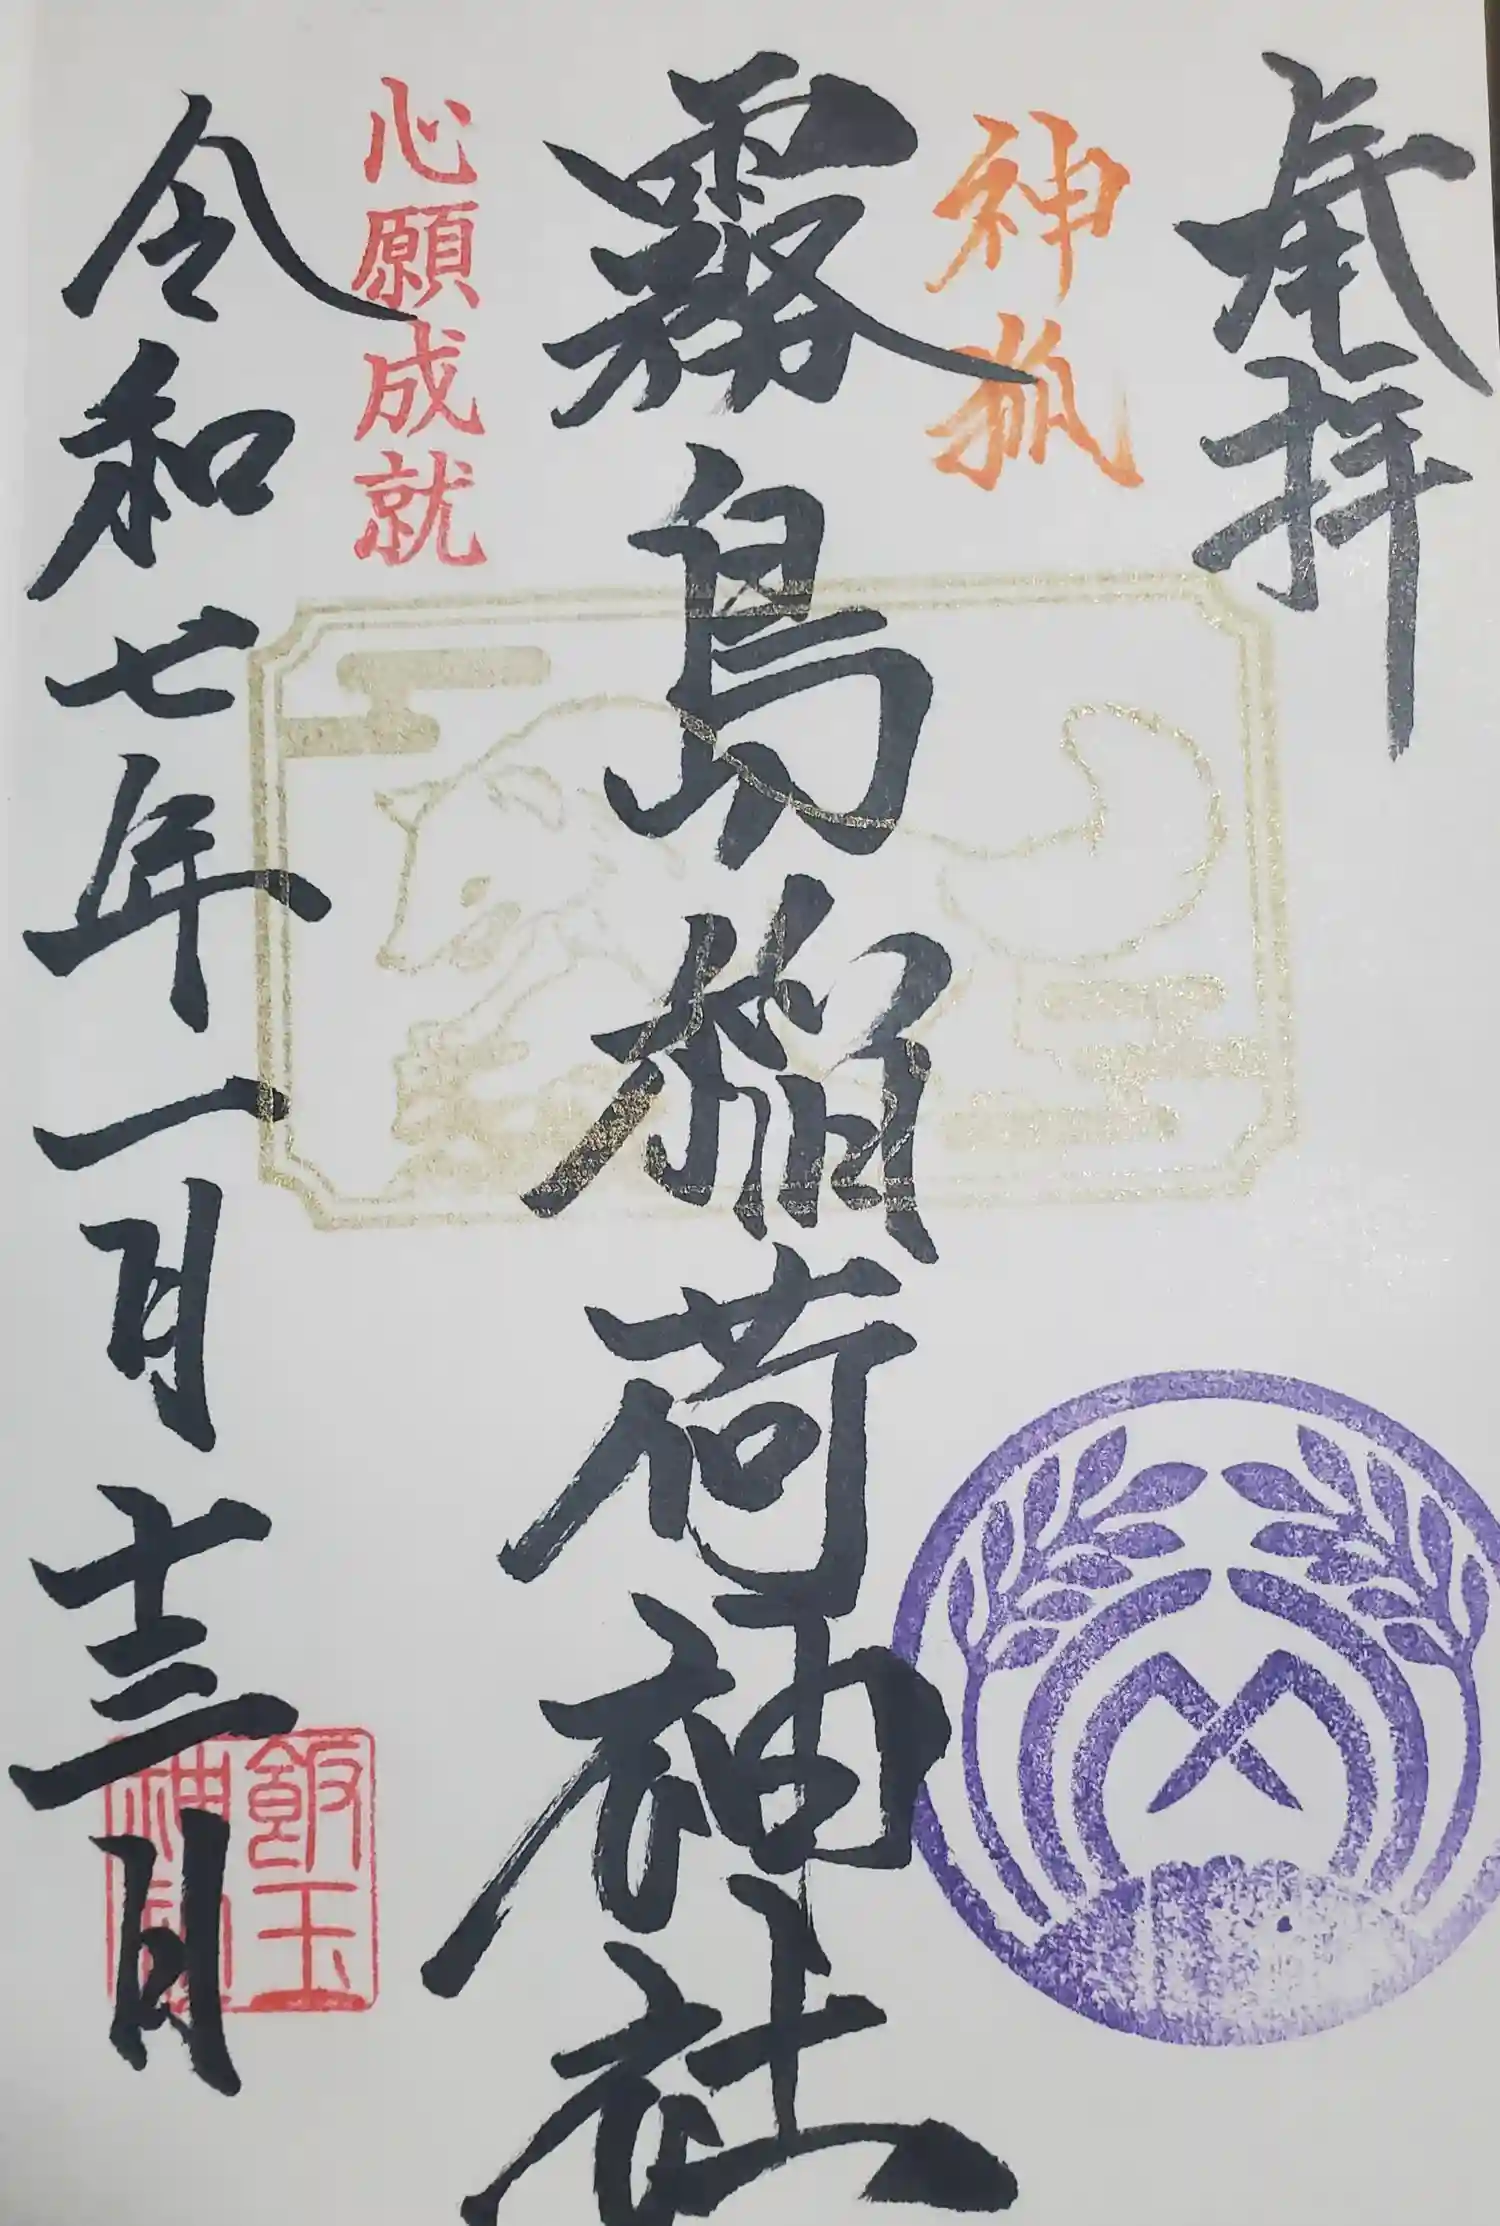 拝
神狐
霧島稲荷神社
心願成就
令和七年一月十三日
飯玉
神